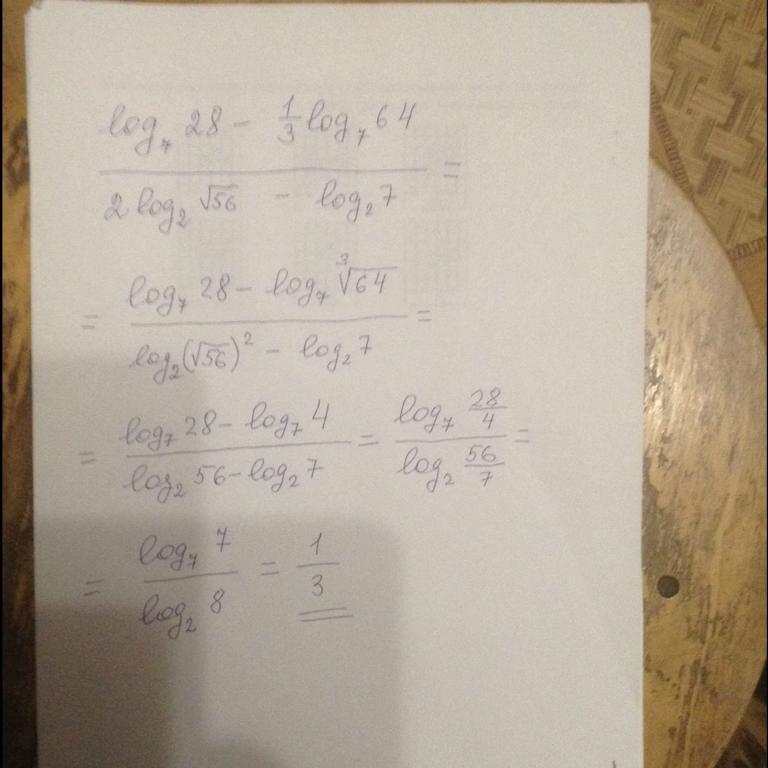 log₇ 28 − 1/3 log₇ 64
2 log₂ √56 − log₂ 7 =
= log₇ 28 − log₇ ∛64 =
log₂(√56)² − log₂ 7
= log₇ 28 − log₇ 4 / log₂ 56 − log₂ 7 = log₇ 28/4 / log₂ 56/7 =
= log₇ 7 / log₂ 8 = 1/3